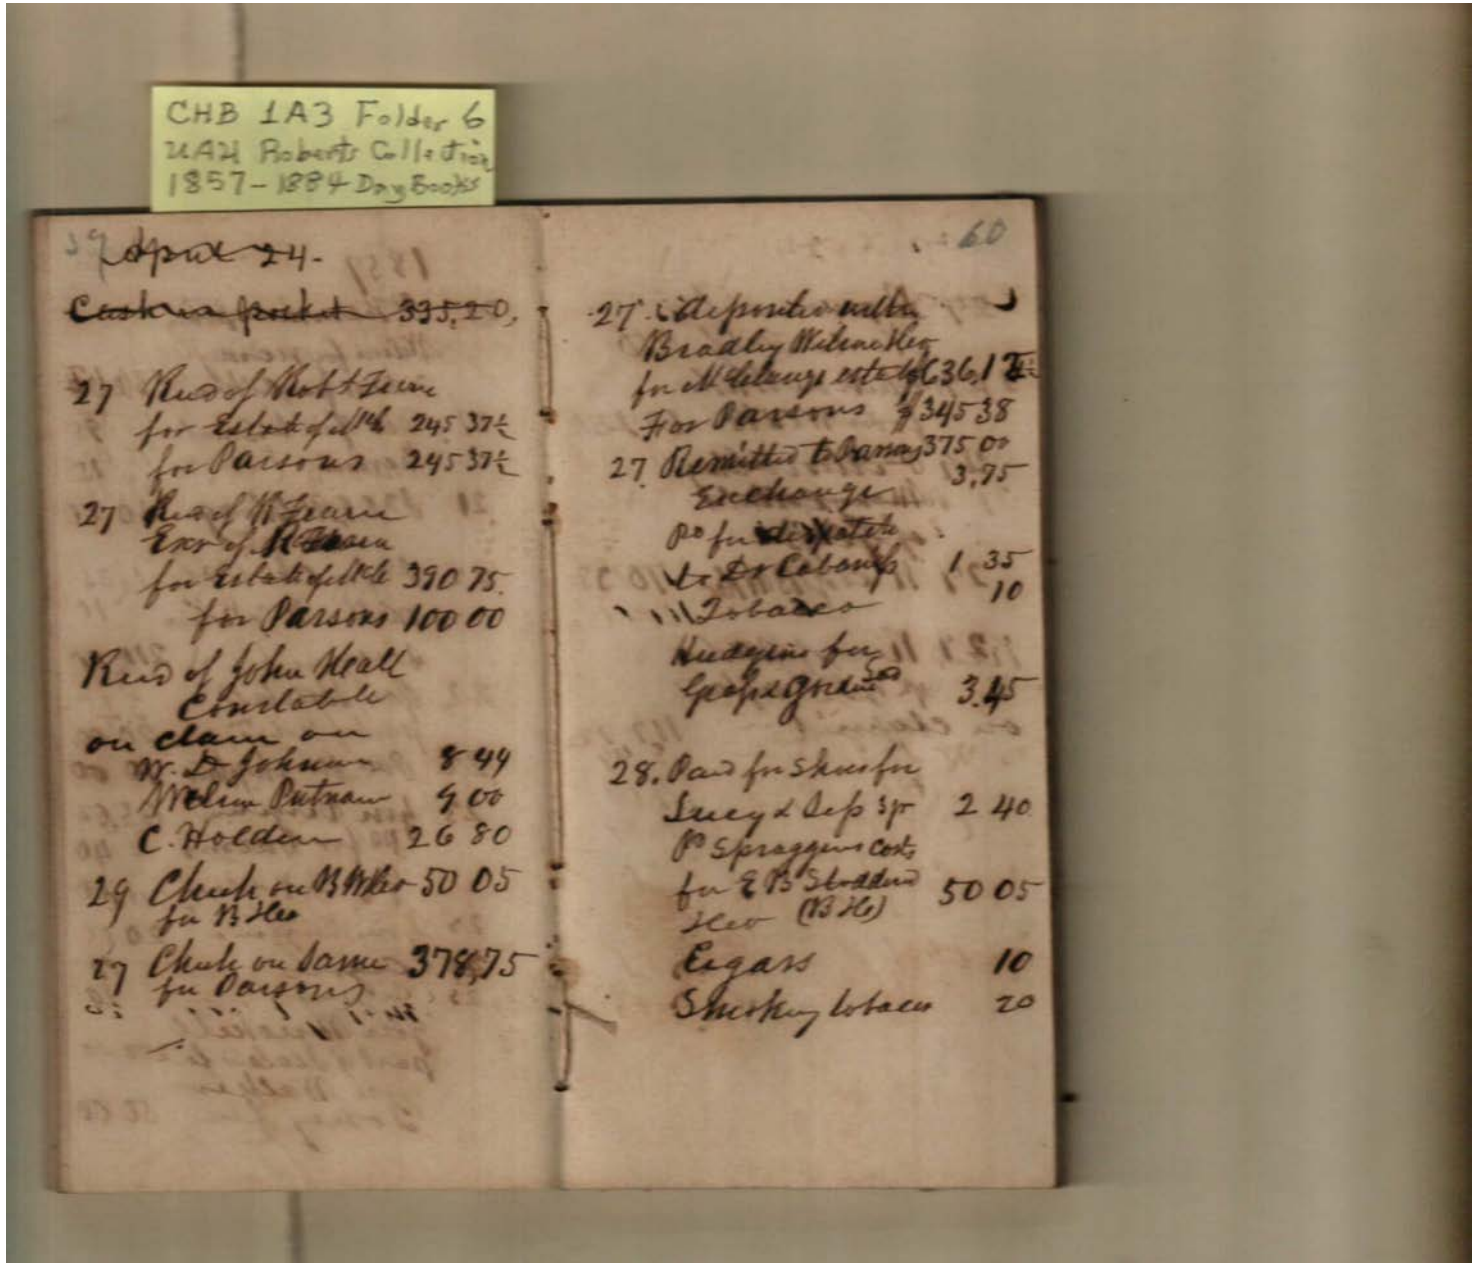 CHB 1A3 Folder 6
UAH Roberts Collection
1857-1884 Day Books
59 April 24.
Cash in pocket 335,20,
27 Recd of Robt Fearn
for Estate of McC 245 37½
for Parsons 245 37½
27 Recd of R Fearn
Exr of R Fearn
for Estate of McC 390 75.
for Parsons 100 00
Recd of John Heall
Constable
on claim on
W. D. Johnson 8 49
Putnam 9 00
C. Holden 26 80
29 Check on 50 05
for B
27 Check on Same 378,75
for Parsons
60
27. deposited with
Bradley Wilson
for estate $636,12
For Parsons $345 38
27. Remitted to 375 00
Exchange 3,75
Pd for dispatch
to Dr Cabaniss 1 35
Tobacco 10
Hudgins for
3.45
28. Paid for Shoes for
Lucy & 2 40
Pd Spraggins costs
for E B 50 05
(B
Cigars 10
Smoking tobacco 20